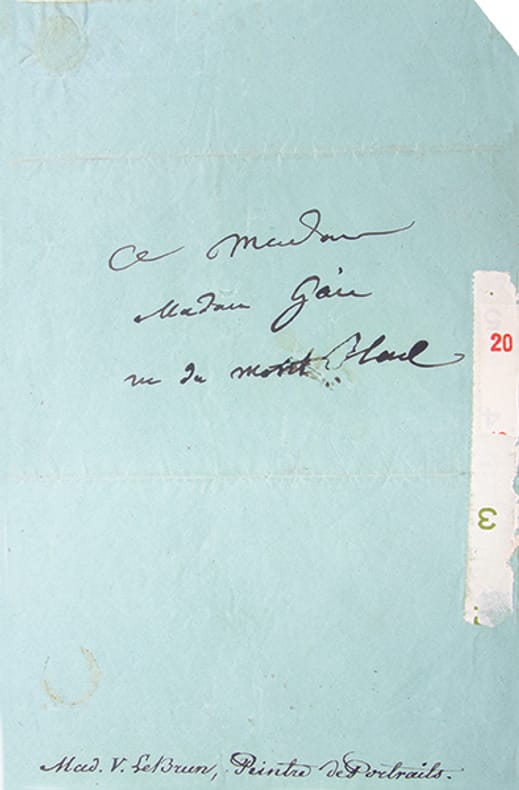 A Madame
Madame Gay
rue du mont Blanc
20
3
Mad. V. LeBrun, Peintre de Portraits.